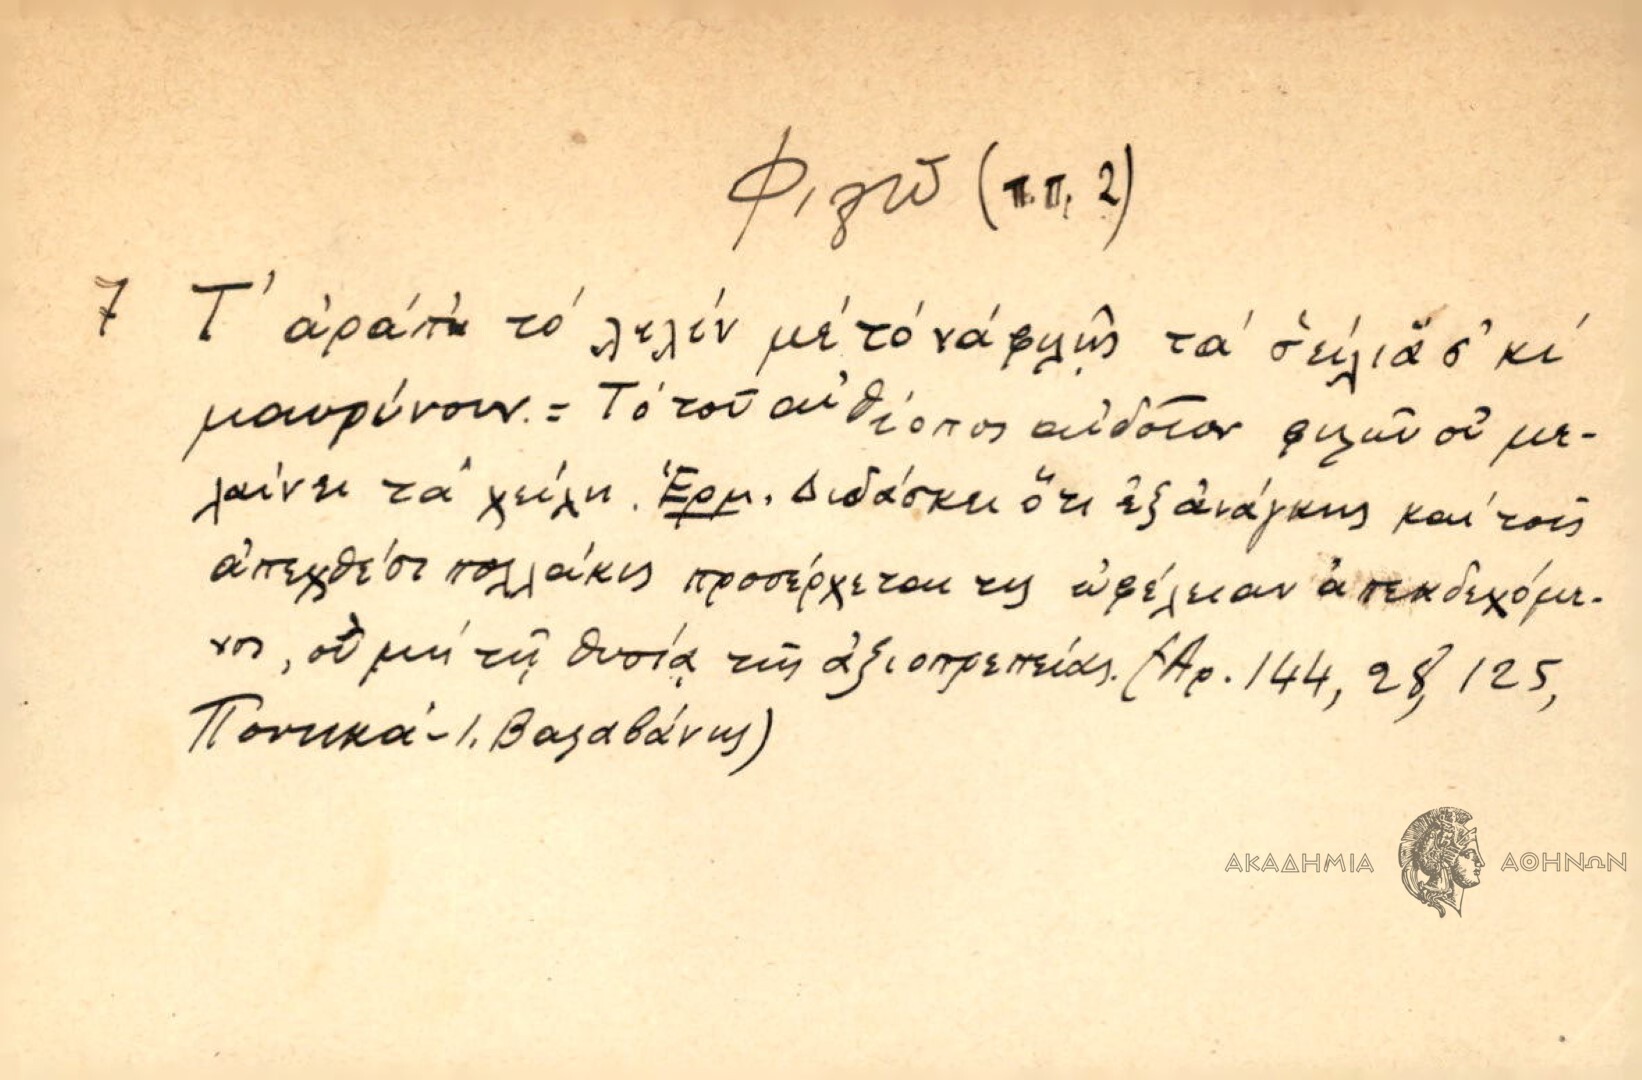 Φιλῶ (π.π. 2)
7 Τ' ἀράπη τὸ λελὶν μὲ τὸ νὰ φιλῇς τὰ σ̌είλιᾰ σ' κὶ
μαυρύνουν. = Τὸ τοῦ αἰθίοπος αἰδοῖον φιλῶν οὐ με-
λαίνει τὰ χείλη. Ἑρμ. Διδάσκει ὅτι ἐξ ἀνάγκης καὶ τοῖς
ἀπεχθέσι πολλάκις προσέρχεται τις ὠφέλειαν ἀπεκδεχόμε-
νος, οὐ μὴ τῇ θυσίᾳ τῆς ἀξιοπρεπείας. (Ἀρ. 144, 28, 125,
Ποντικά - Ι. Βαλαβάνης)
ΑΚΑΔΗΜΙΑ ΑΘΗΝΩΝ